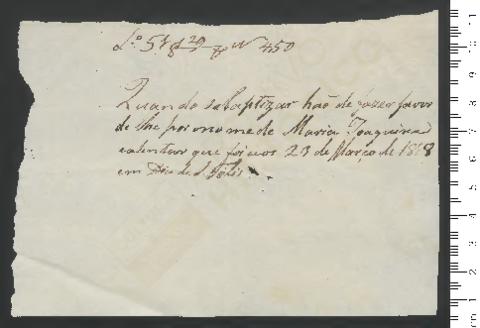 L.º 5 f 29 N 450
Quando se baptizar haõ de fazer favor
de lhe por nome de Maria Joaquina
entrou que foi aos 23 de Março de 1818
em Dia de S. Felis